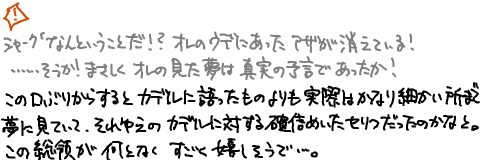 シャーグなんということだ!? オレのウデにあった アザが消えている!
……そうか! まさしく オレの見た夢は 真実の予言であったか!
この口ぶりからすると カデルに語ったものよりも 実際はかなり細かい所まで
夢に見ていて、それゆえの カデルに対する確信めいたセリフだったのかなと。
この総領が 何となく すごく嬉しそうで…。